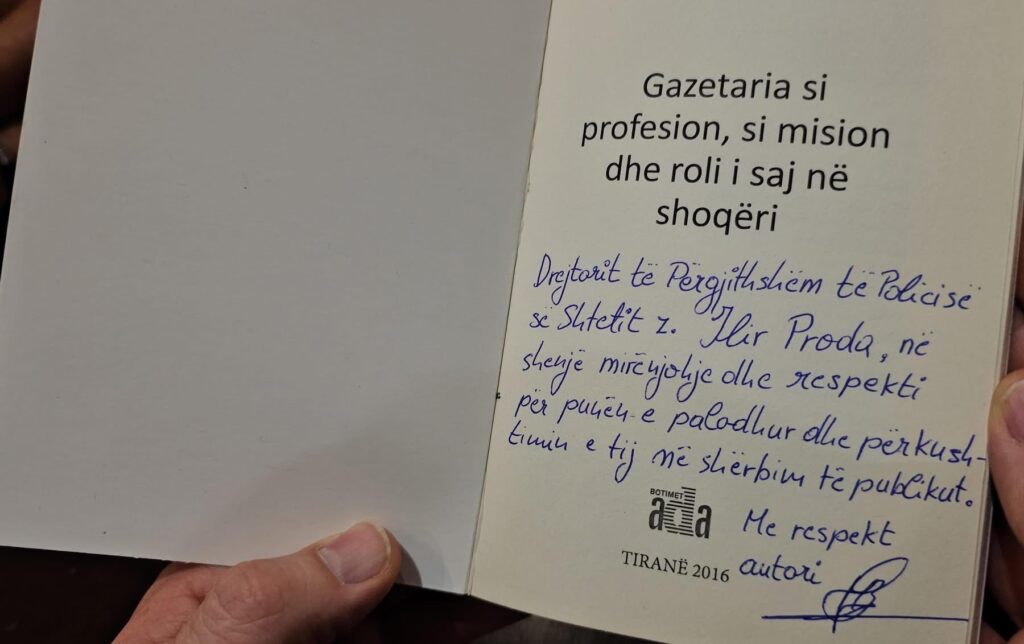 Gazetaria si
profesion, si mision
dhe roli i saj në
shoqëri
Drejtorit të Përgjithshëm të Policisë
së Shtetit z. Ilir Proda, në
shenjë mirënjohje dhe respekti
për punën e palodhur dhe përkush-
timin e tij në shërbim të publikut.
BOTIMET
ada
Me respekt
TIRANË 2016
autori